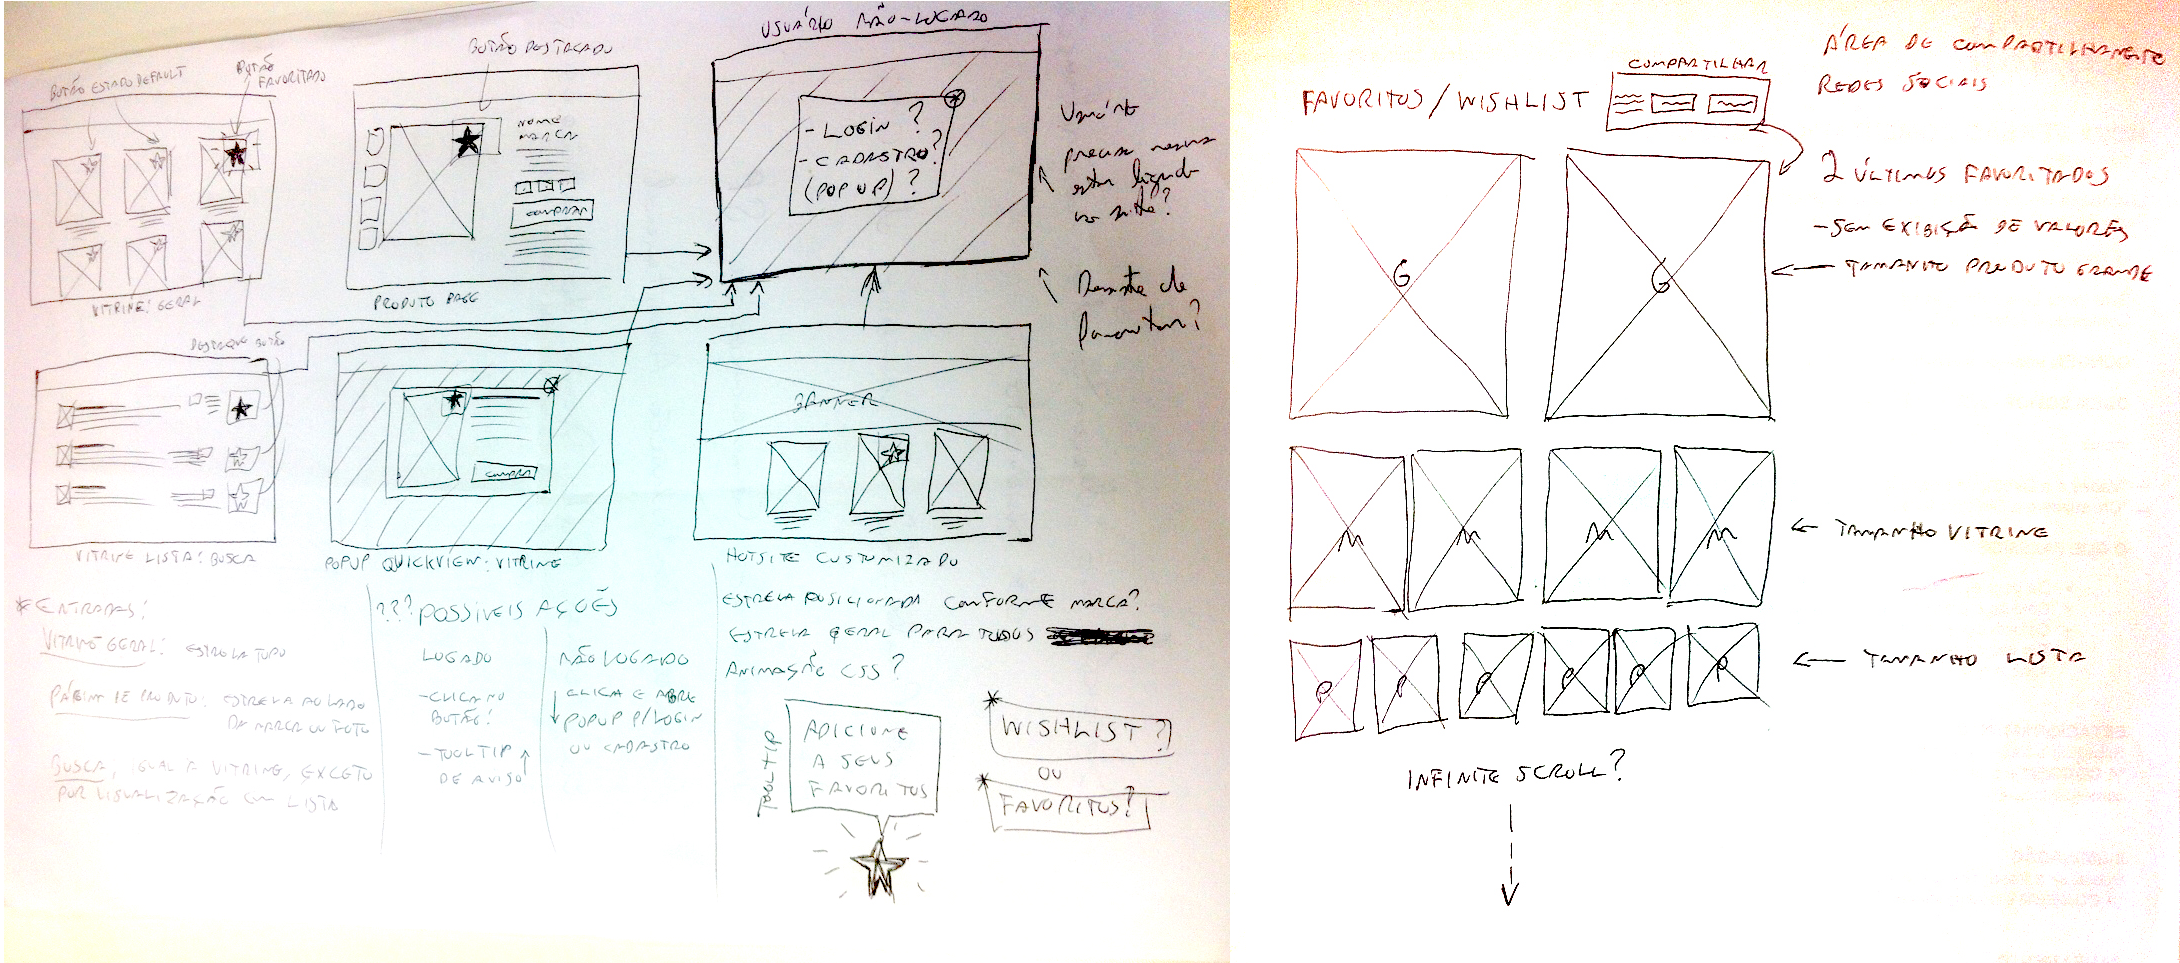 USUÁRIO NÃO-LOGADO
BOTÃO DESTACADO
BOTÃO ESTADO DEFAULT
BOTÃO
FAVORITADO
NOME
MARCA
COMPRAR
- LOGIN ?
- CADASTRO?
(POPUP) ?
Usuário
precisa mesmo
estar logado
no site?
VITRINE: GERAL
PRODUTO PAGE
DESTAQUE BOTÃO
BANNER
COMPRAR
VITRINE LISTA: BUSCA
POPUP QUICKVIEW: VITRINE
HOTSITE CUSTOMIZADO
* ENTRADAS:
VITRINE GERAL: ESTRELA TOPO
PÁGINA DE PRODUTO: ESTRELA AO LADO
DA MARCA OU FOTO
BUSCA, IGUAL A VITRINE, EXCETO
POR VISUALIZAÇÃO COM LISTA
??? POSSÍVEIS AÇÕES
LOGADO
- CLICA NO
BOTÃO:
- TOOLTIP
DE AVISO
NÃO LOGADO
CLICA E ABRE
POPUP P/LOGIN
OU CADASTRO
ESTRELA POSICIONADA CONFORME MARCA?
ESTRELA GERAL PARA TODOS
ANIMAÇÃO CSS?
TOOLTIP
ADICIONE
A SEUS
FAVORITOS
* WISHLIST?
OU
* FAVORITOS?
FAVORITOS / WISHLIST
COMPARTILHAR
ÁREA DE COMPARTILHAMENTO
REDES SOCIAIS
2 ÚLTIMOS FAVORITADOS
- SEM EXIBIÇÃO DE VALORES
TAMANHO PRODUTO GRANDE
G G
M M M M
TAMANHO VITRINE
P P P P P P
TAMANHO LISTA
INFINITE SCROLL?